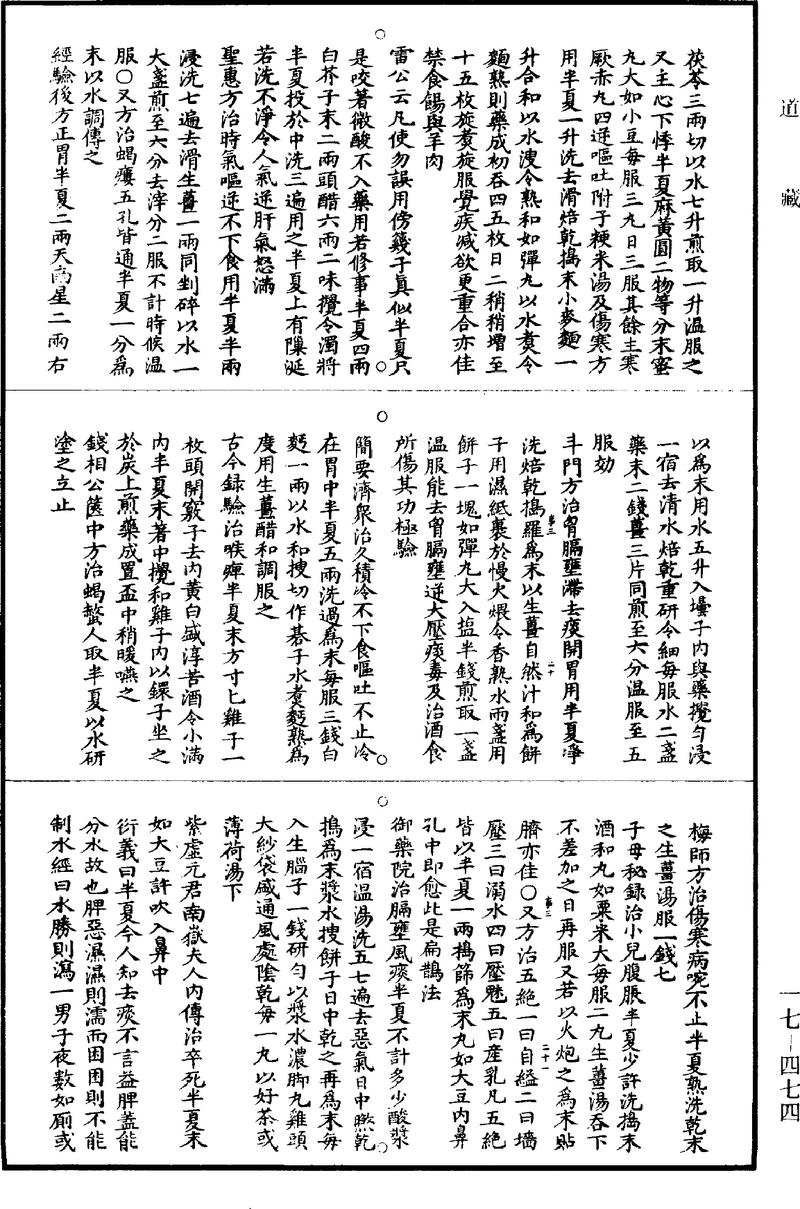 道藏
一七-四七四
茯苓三兩切以水七升煎取一升溫服之
又主心下悸半夏麻黃圓二物等分末蜜
丸大如小豆每服三丸日三服其餘主寒
厥赤丸四逆嘔吐附子粳米湯及傷寒方
用半夏一升洗去滑焙乾搗末小麥麵一
升合和以水溲令熟和如彈丸以水煮令
麵熟則藥成初吞四五枚日二稍稍增至
十五枚旋煮旋服覺疾減欲更重合亦佳
禁食餳與羊肉
雷公云凡使勿誤用傍籛子真似半夏只
是咬著微酸不入藥用若修事半夏四兩
白芥子末二兩頭醋六兩二味攪令濁將
半夏投於中洗三遍用之半夏上有隟涎
若洗不淨令人氣逆肝氣怒滿
聖惠方治時氣嘔逆不下食用半夏半兩
浸洗七遍去滑生薑一兩同剉碎以水一
大盞煎至六分去滓分二服不計時候溫
服○又方治蝎瘻五孔皆通半夏一分為
末以水調傅之
經驗後方正胃半夏二兩天南星二兩右
以為末用水五升入壜子內與藥攪勻浸
一宿去清水焙乾重研令細每服水二盞
藥末二錢薑三片同煎至六分溫服至五
服効
斗門方治胷膈壅滯去痰開胃用半夏淨
洗焙乾搗羅為末以生薑自然汁和為餅
子用濕紙裹於慢火煨令香熟水兩盞用
餅子一塊如彈丸大入塩半錢煎取一盞
溫服能去胷膈壅逆大壓痰毒及治酒食
所傷其功極驗
簡要濟眾治久積冷不下食嘔吐不止冷
在胃中半夏五兩洗過為末每服三錢白
麪一兩以水和搜切作碁子水煮麪熟為
度用生薑醋和調服之
古今錄驗治喉痺半夏末方寸匕雞子一
枚頭開竅子去內黃白盛淳苦酒令小滿
內半夏末著中攪和雞子內以鐶子坐之
於炭上煎藥成置盃中稍暖嚥之
錢相公篋中方治蝎螫人取半夏以水研
塗之立止
梅師方治傷寒病啘不止半夏熟洗乾末
之生薑湯服一錢匕
子母秘錄治小兒腹脹半夏少許洗搗末
酒和丸如粟米大每服二丸生薑湯吞下
不差加之日再服又若以火炮之為末貼
臍亦佳○又方治五絕一曰自縊二曰墻
壓三曰溺水四曰壓魅五曰產乳凡五絕
皆以半夏一兩搗篩為末丸如大豆內鼻
孔中即愈此是扁鵲法
御藥院治膈壅風痰半夏不計多少酸漿
浸一宿溫湯洗五七遍去惡氣日中㬠乾
搗為末漿水搜餅子日中乾之再為末每
入生腦子一錢研勻以漿水濃腳丸雞頭
大紗袋盛通風處陰乾每一丸以好茶或
薄荷湯下
紫虛元君南嶽夫人內傳治卒死半夏末
如大豆許吹入鼻中
衍義曰半夏今人知去痰不言益脾蓋能
分水故也脾惡濕濕則濡而困困則不能
制水經曰水勝則瀉一男子夜數如厠或